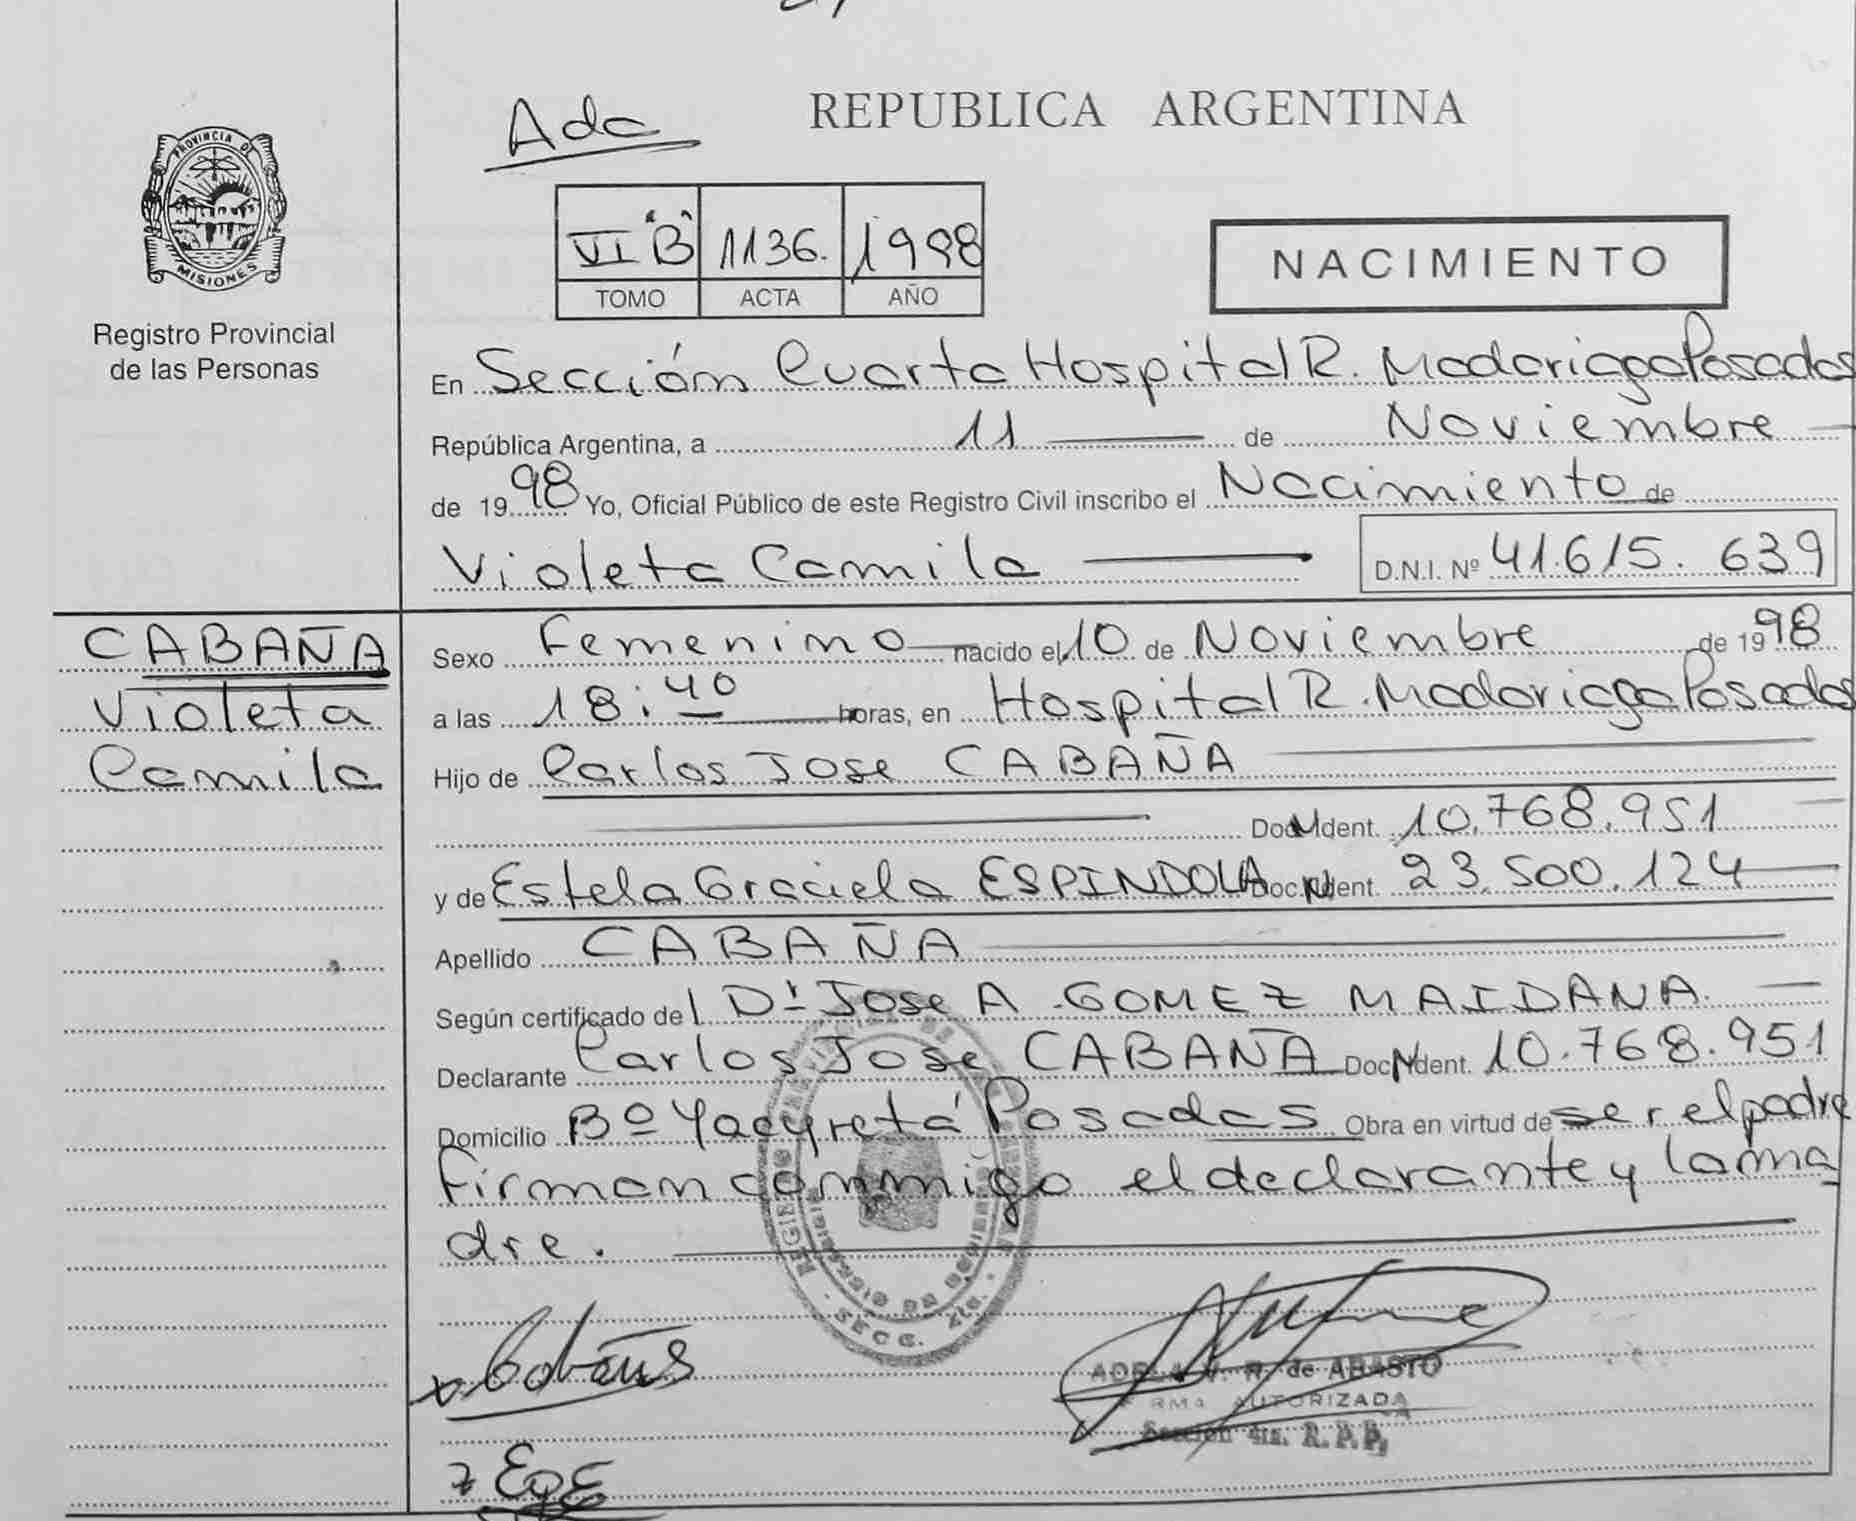 Ada
REPUBLICA ARGENTINA
PROVINCIA DE
MISIONES
Registro Provincial
de las Personas
VI "B" 1136. 1998
TOMO ACTA AÑO
NACIMIENTO
En Sección Cuarta Hospital R. Madariaga Posadas
República Argentina, a 11 de Noviembre
de 1998 Yo, Oficial Público de este Registro Civil inscribo el Nacimiento de
Violeta Camila D.N.I. Nº 41.615.639
CABAÑA
Violeta
Camila
Sexo Femenino nacido el 10 de Noviembre de 1998
a las 18:40 horas, en Hospital R. Madariaga Posadas
Hijo de Carlos Jose CABAÑA
Doc. Ident. 10.768.951
y de Estela Graciela ESPINDOLA Doc. Ident. 23.500.124
Apellido CABAÑA
Según certificado del Dr Jose A. GOMEZ MAIDANA.
Declarante Carlos Jose CABAÑA Doc. Ident. 10.768.951
Domicilio Bº Yacyretá Posadas Obra en virtud de ser el padre
Firman conmigo el declarante y la ma
dre.
Cabaña
ADELA V. R. de ABASTO
FIRMA AUTORIZADA
Sección 4ta. R. P. P.
EGE